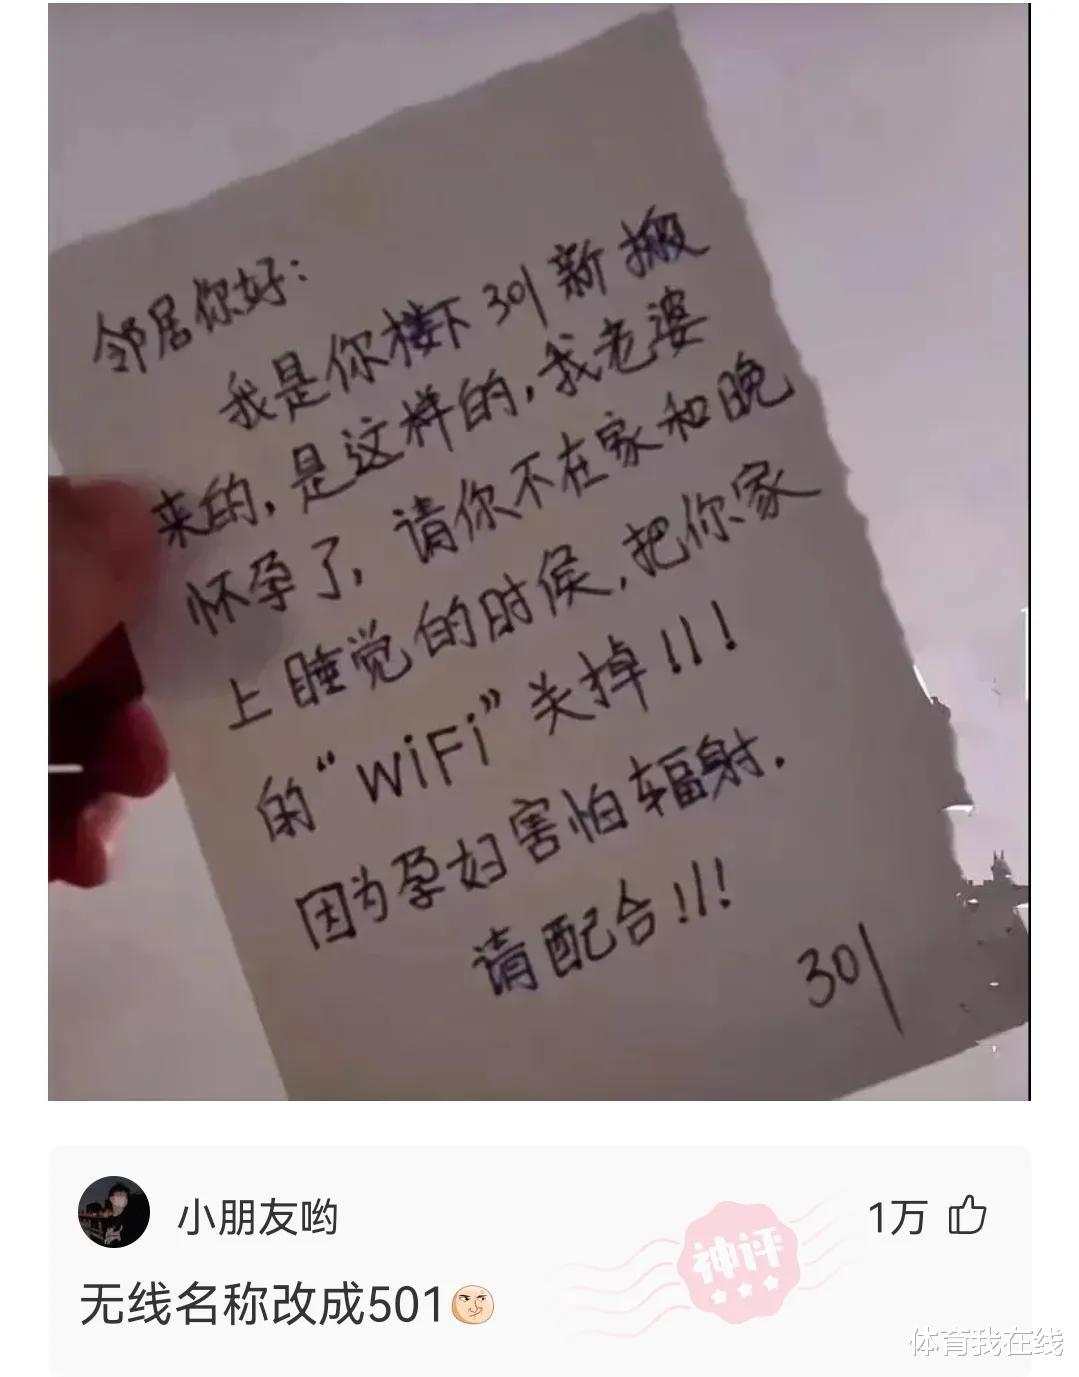 邻居你好：
我是你楼下301新搬
来的，是这样的，我老婆
怀孕了，请你不在家和晚
上睡觉的时候，把你家
的“WiFi”关掉！！！
因为孕妇害怕辐射．
请配合！！！
301
小朋友哟
1万
神评
无线名称改成501
体育我在线